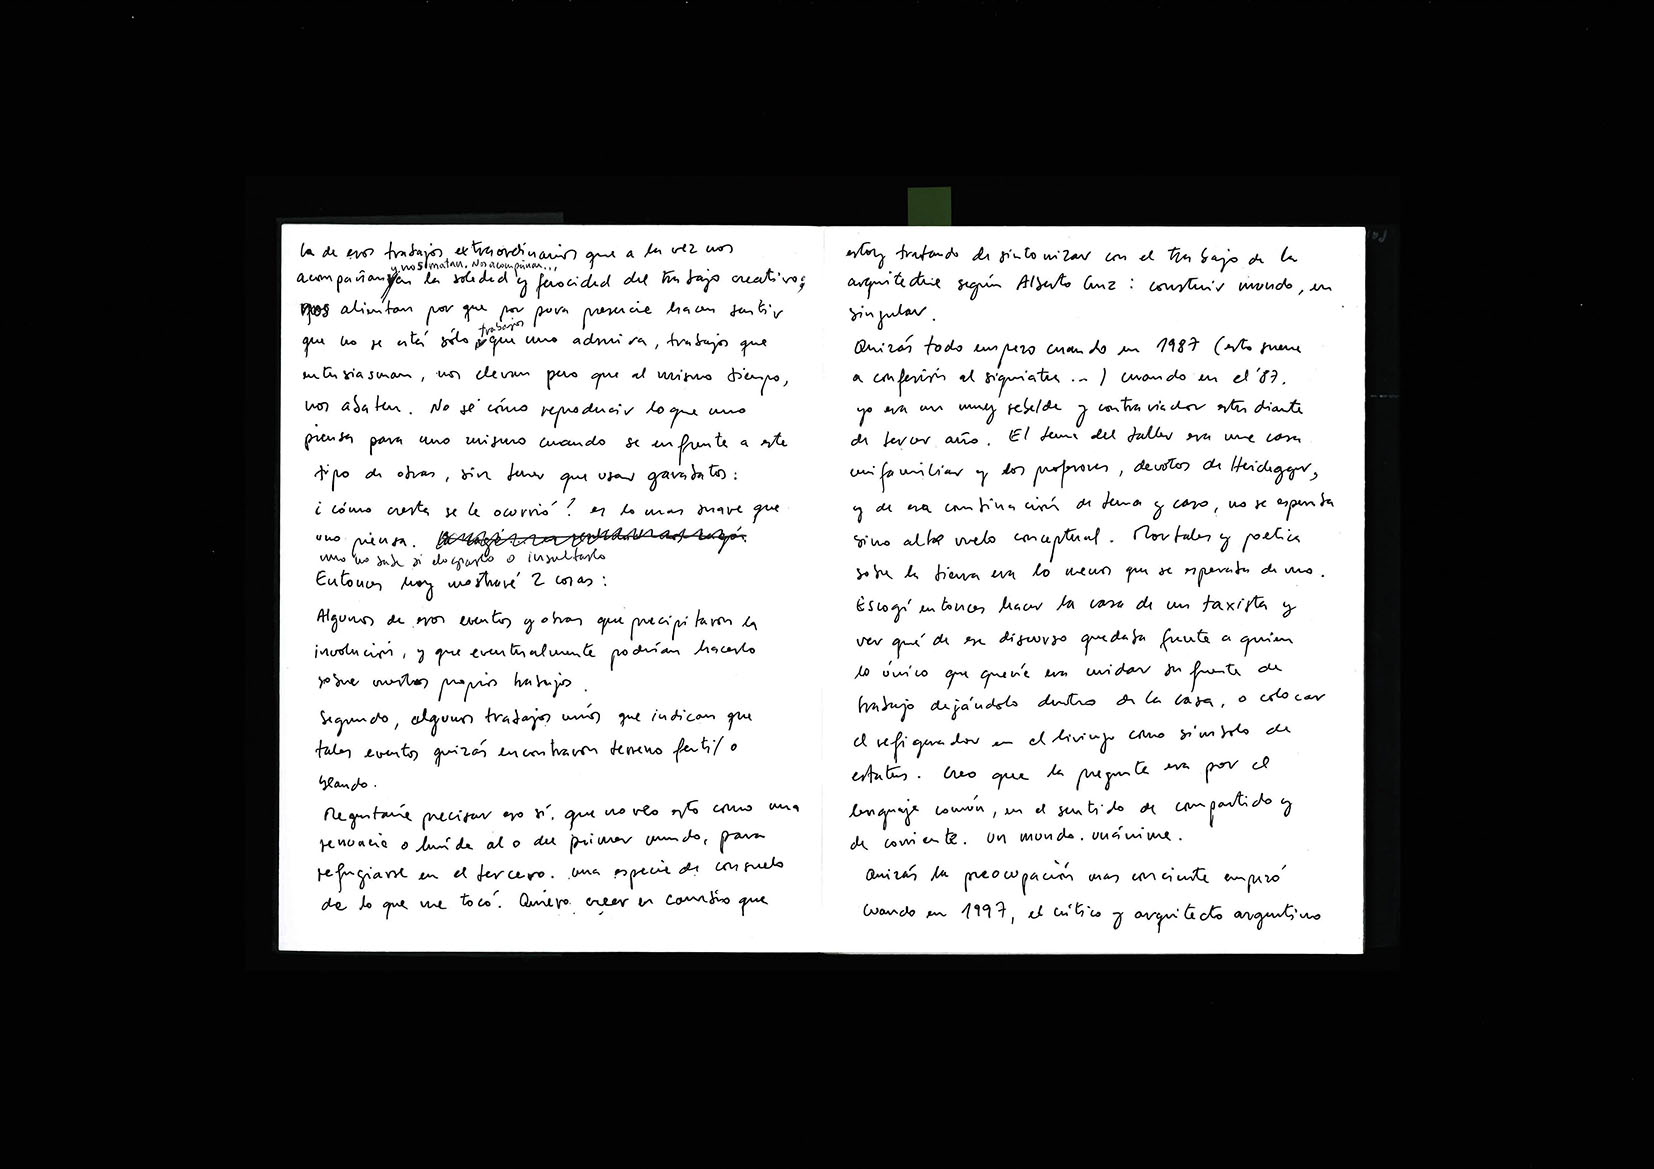 la de esos trabajos extraordinarios que a la vez nos
y nos matan. Nos acompañan...
acompañan en la soledad y ferocidad del trabajo creativo;
nos alimentan por que por pura presencia hacen sentir
que no se está sólo; trabajos que uno admira, trabajos que
entusiasman, nos elevan pero que al mismo tiempo,
nos abaten. No sé cómo reproducir lo que uno
piensa para uno mismo cuando se enfrenta a este
tipo de obras, sin tener que usar garabatos:
¿cómo cresta se le ocurrió? es lo mas suave que
uno piensa.
uno no sabe si elogiarlo o insultarlo
Entonces hoy mostraré 2 cosas:
Algunos de esos eventos y obras que precipitaron la
involución, y que eventualmente podrían hacerlo
sobre nuestros propios trabajos.
Segundo, algunos trabajos míos que indican que
tales eventos quizás encontraron terreno fertil o
blando.
Me gustaría precisar eso sí, que no veo esto como una
renuncia o huída al o del primer mundo, para
refugiarse en el tercero. una especie de consuelo
de lo que me tocó. Quiero creer en cambio que
estoy tratando de sintonizar con el trabajo de la
arquitectura según Alberto Cruz: construir mundo, en
singular.
Quizás todo empezo cuando en 1987 (esto suena
a confesión al siquiatra...) cuando en el '87.
yo era un muy rebelde y contrariador estudiante
de tercer año. El tema del taller era una casa
unifamiliar y los profesores, devotos de Heidegger,
y de esa combinación de tema y caso, no se esperaba
sino alto vuelo conceptual. Mortales y poetica
sobre la tierra era lo menos que se esperaba de uno.
Escogí entonces hacer la casa de un taxista y
ver qué de ese discurso quedaba frente a quien
lo único que quería era cuidar su fuente de
trabajo dejándolo dentro de la casa, o colocar
el refigerador en el living como símbolo de
estatus. Creo que la pregunta era por el
lenguaje común, en el sentido de compartido y
de corriente. Un mundo. unánime.
Quizás la preocupación mas conciente empezó
cuando en 1997, el crítico y arquitecto argentino